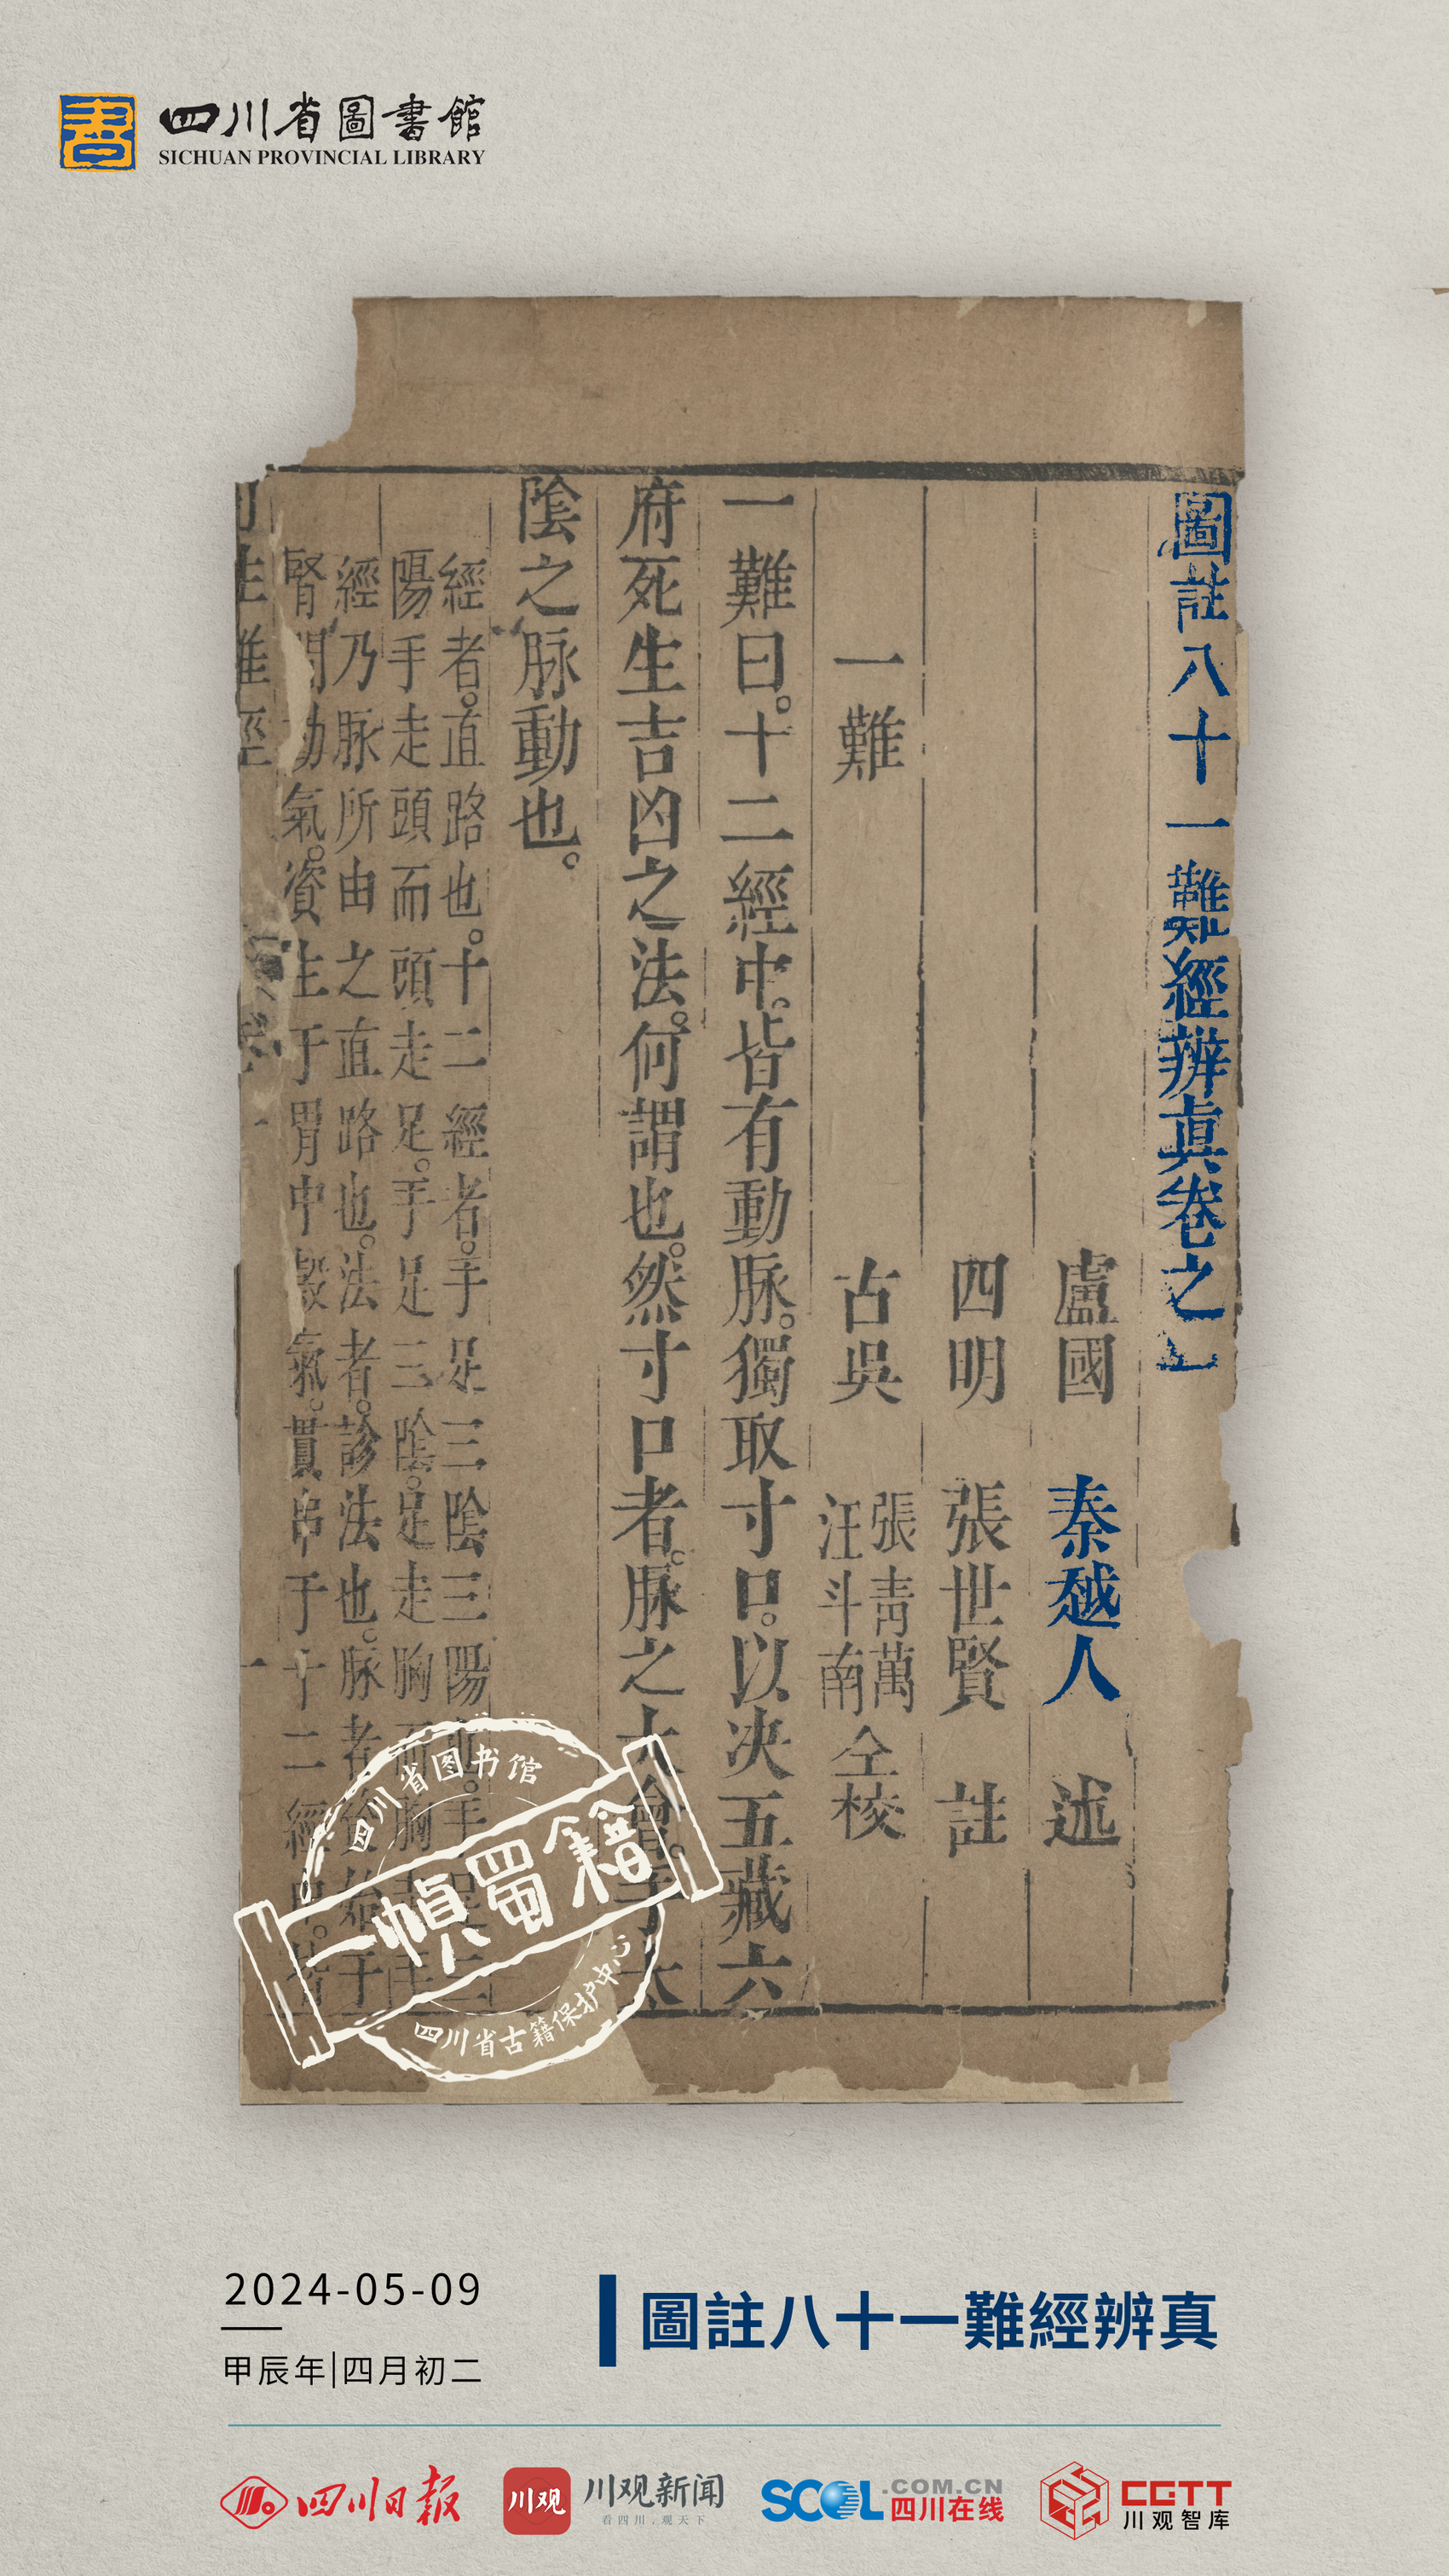 四川省圖書館
SICHUAN PROVINCIAL LIBRARY
圖註八十一難經辨真卷之一
盧國 秦越人 述
四明 張世賢 註
一難 古吳 張青萬 汪斗南 仝校
一難曰。十二經中。皆有動脉。獨取寸口。以决五藏六
府死生吉凶之法。何謂也。然寸口者。脉之大會。手太
陰之脉動也。
經者。直路也。十二經者。手足三陰三陽
陽手走頭而頭走足。手足三陰。足走胸
經乃脉所由之直路也。法者。診法也。脉者
腎間動氣。資生于胃中穀氣。貫串于十二經中
一幀蜀籍
四川省图书馆
四川省古籍保护中心
2024-05-09
甲辰年|四月初二
圖註八十一難經辨真
四川日报
川观
川观新闻
看四川,观天下
SCOL.COM.CN
四川在线
CGTT
川观智库